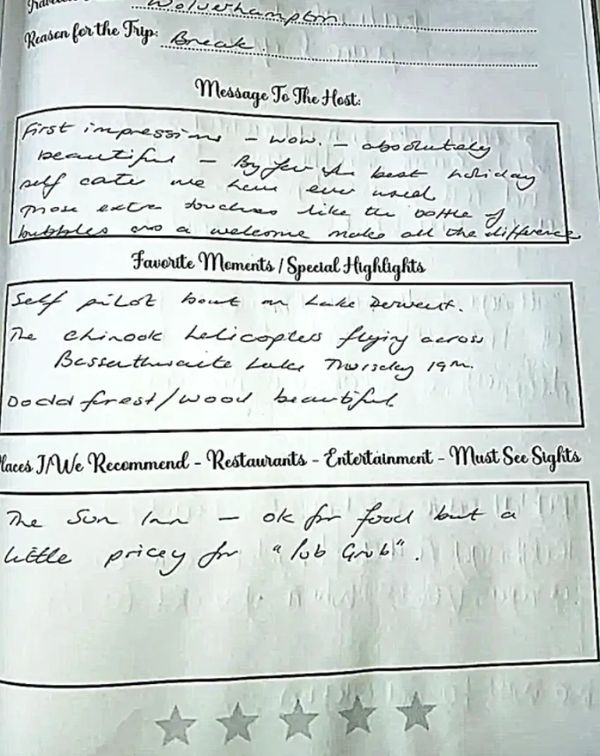 Wolverhampton
Reason for the Trip: Break.
Message To The Host:
First impressions - wow. - absolutely
beautiful - By far the best holiday
self cater we have ever used
Those extra touches like the bottle of
bubbles and a welcome make all the difference
Favorite Moments / Special Highlights
Self pilot boat on Lake Derwent.
The chinook helicopters flying across
Bassenthwaite Lake Thursday 19th.
Dodd forest/wood beautiful
Places I/We Recommend - Restaurants - Entertainment - Must See Sights
The Sun Inn - ok for food but a
little pricey for "Pub Grub".